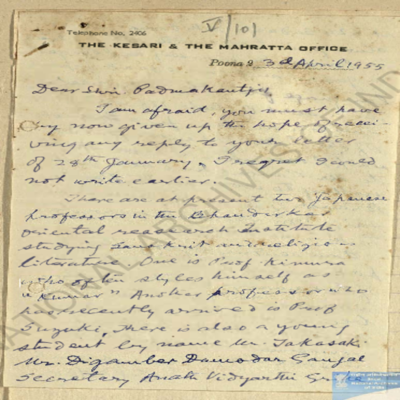 Telephone No. 2406
V/101
THE KESARI & THE MAHRATTA OFFICE
Poona 2, 3d April 1955
Dear Shri Padmakantji,
I am afraid, you must have
by now given up the hope of recei-
ving any reply to your letter
of 28th January. I regret I could
not write earlier.
There are at present two Japanese
professors in the Bhandarkar
oriental research Institute
studying Sanskrit religious
literature. One is Prof Kimura
who often styles himself as
"Kumar" Another professor who
has recently arrived is Prof
Suzuki. There is also a young
student by name Mr. Takasaki
Mr. Digamber Damodar Gangal
Secretary Anath Vidyarthi Griha
NATIONAL ARCHIVES OF INDIA